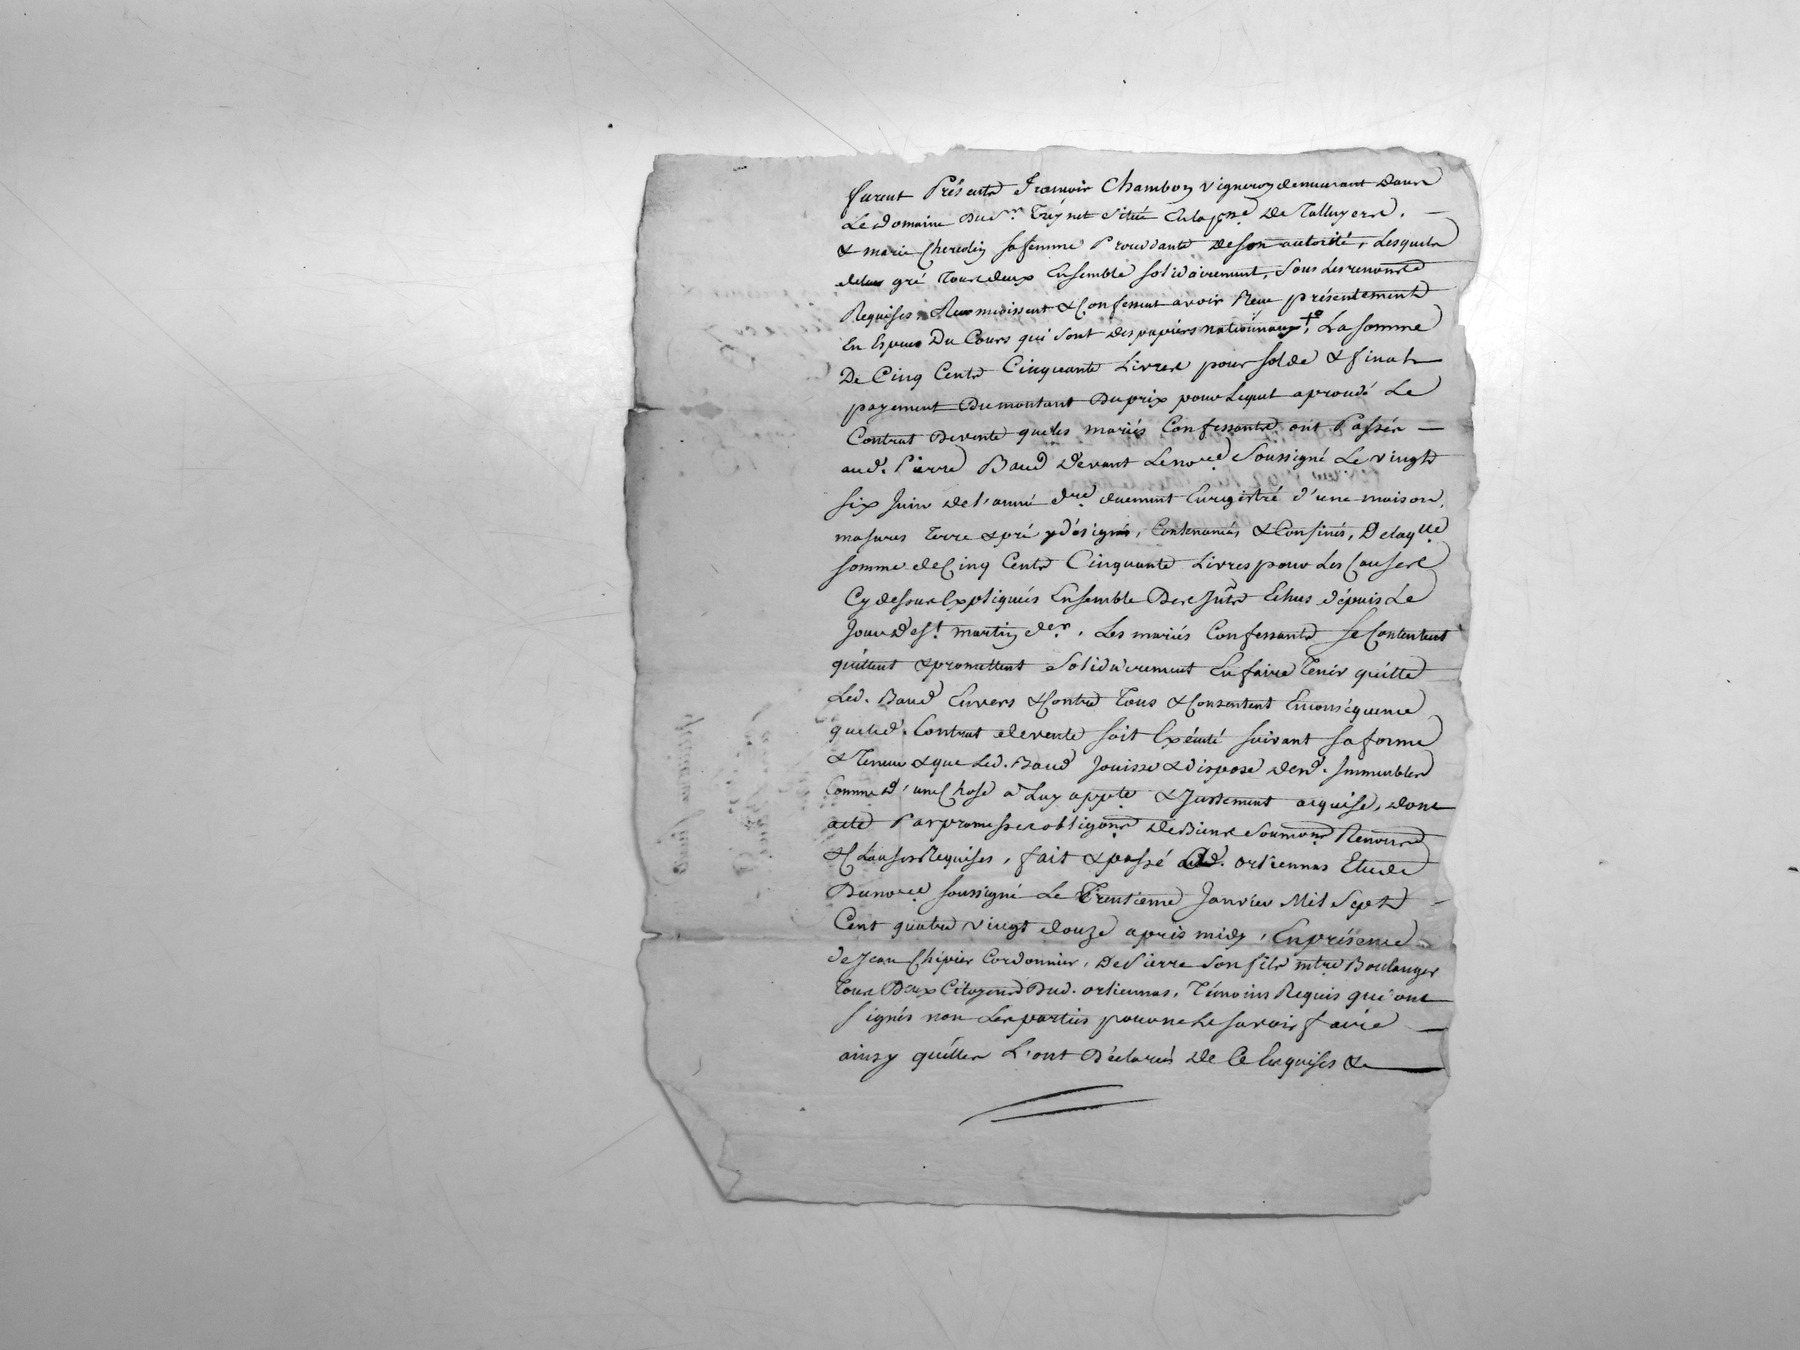 furent Présents François Chambon vigneron demeurant dans
Le domaine Du Sr. Treynet situé En la psse. De Talluyers.
& marie Cheredin sa femme Procédante de son autorité, Lesquels
de leur gré Tous deux Ensemble solidairement, sous Les renonces
Requises & Confessent avoir Reçu présentement
En Espèces Du Cours qui sont des papiers nationaux, La somme
De Cinq Cents Cinquante Livres pour solde & final
payement Du montant Du prix pour Lequel a procédé Le
Contrat De vente que les mariés Confessants ont Passés
aud. Pierre Baud devant Le nore. soussigné Le vingt
six Juin de l'année dre. duement Enregistré d'une maison,
masures Terre & pré y désignés, Contenancés & Confinés, De laqlle
somme de Cinq Cents Cinquante Livres pour Les Causes
Cy dessus Expliqués Ensemble Des Intts Echus depuis Le
Jour de St. martin der. Les mariés Confessants se Contentent
quittent & promettent solidairement En faire Tenir quitte
Led. Baud Envers & Contre Tous & Consentent En conséquence
que led. Contrat de vente soit Exécuté suivant sa forme
& Teneur & que Led. Baud Jouisse & dispose desd. Immeubles
Comme d'une Chose à Luy appte. & Justement acquise, dont
acte Par promesses obligons. de Biens soumons. Renonces
& Clauses Requises, fait & passé aud. orliennas Etude
Du nore. soussigné Le Trentieme Janvier Mil Sept
Cent quatre vingt douze après midy, En présence
de Jean Chipier Cordonnier, De Pierre son fils mtre Boulanger
Tous Deux Citoyens Dud. orliennas, Témoins Requis qui ont
signés non Les parties pour ne Le savoir faire
ainsy qu'elles L'ont Déclarés de Ce Enquises &